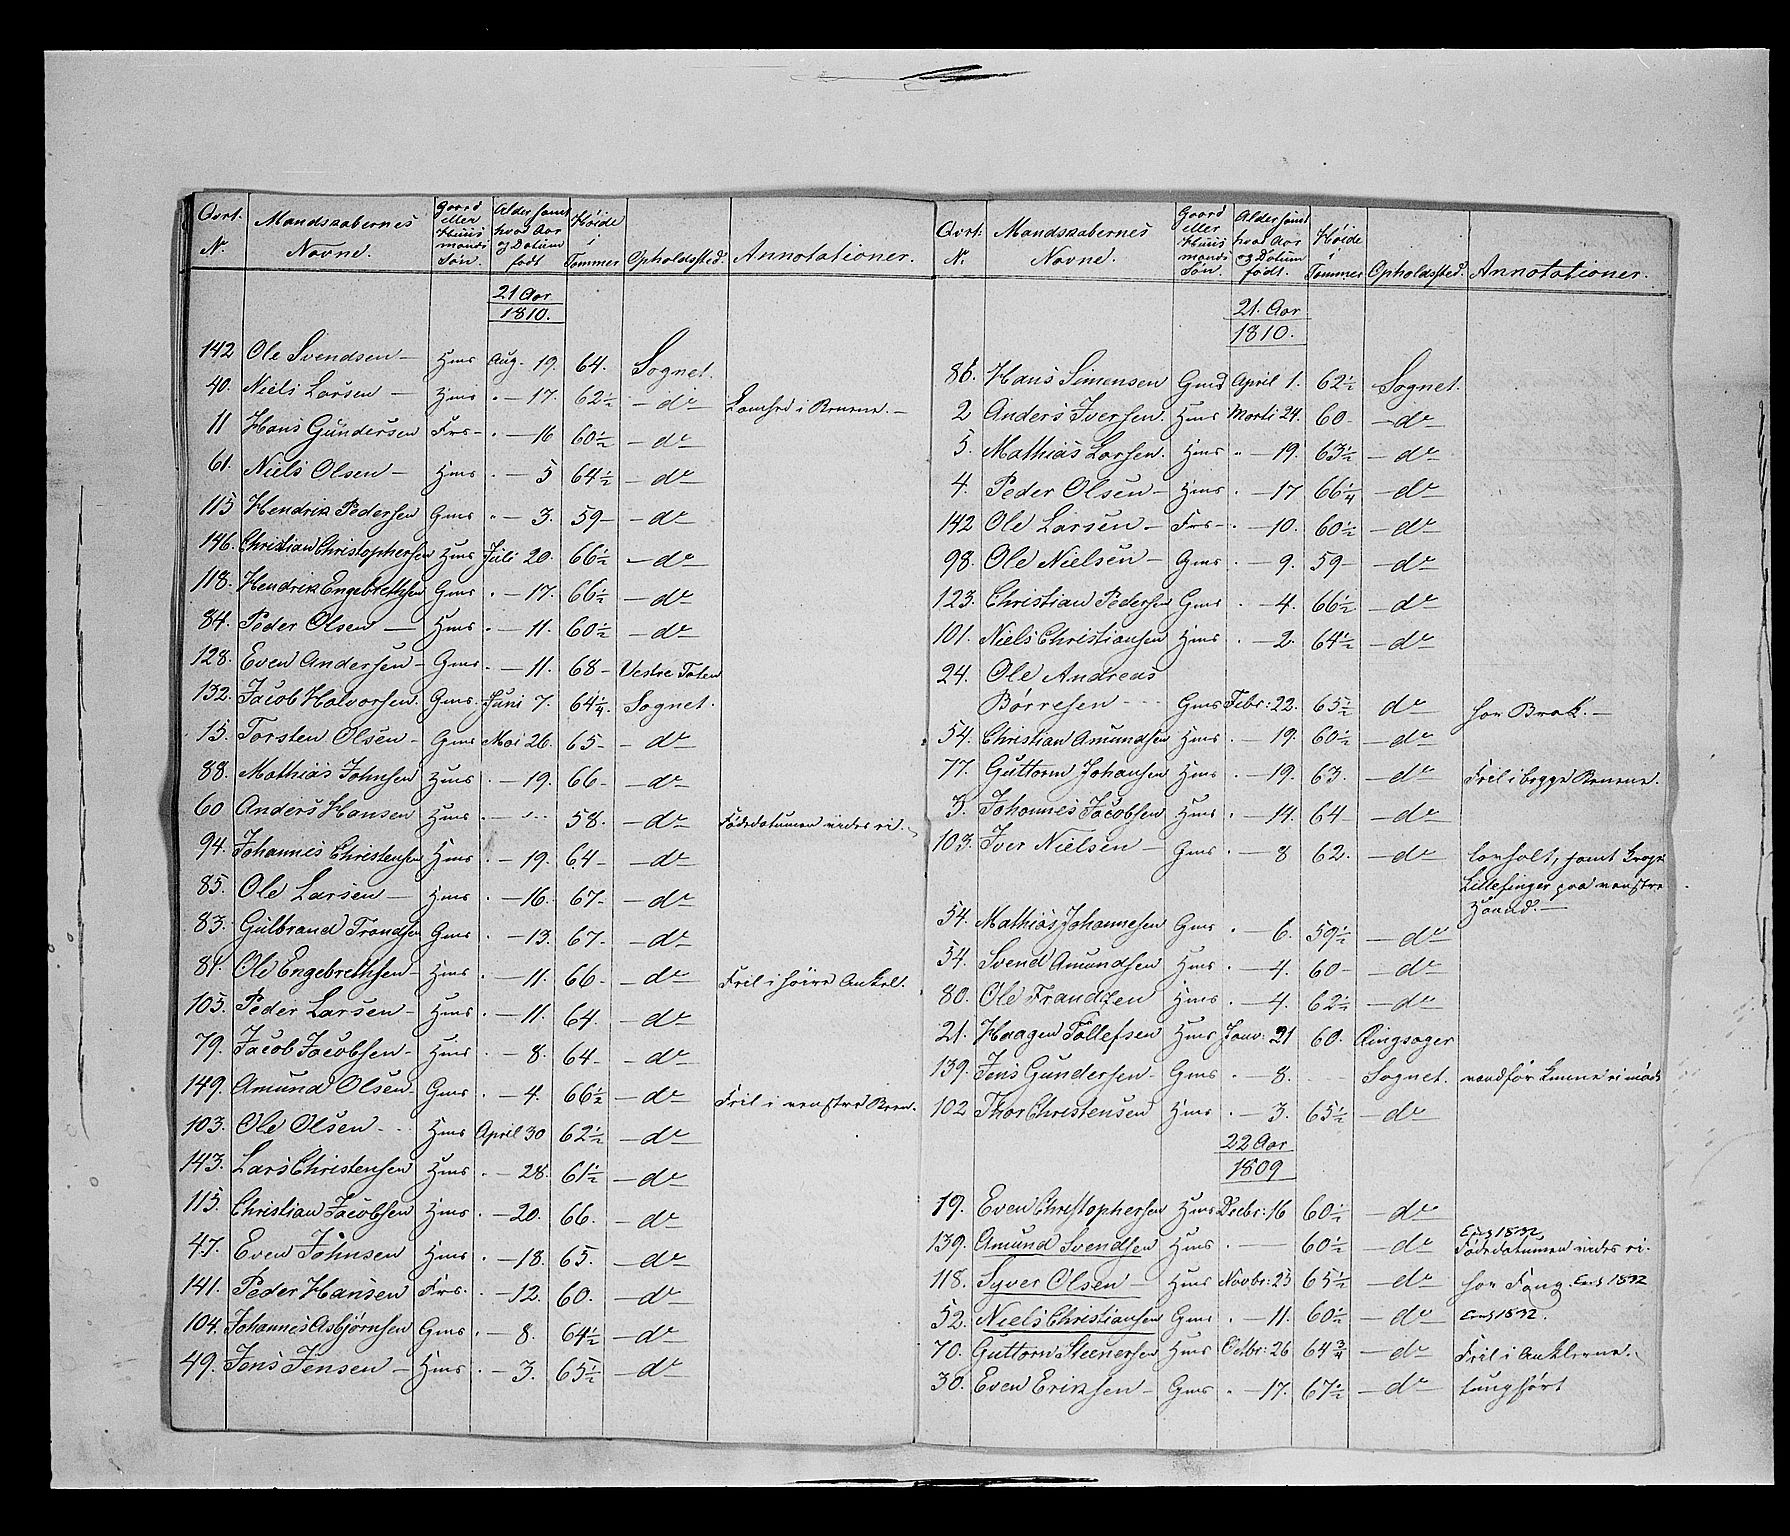 Qvrt. N. Mandskabernes Navne. Gaard eller Huus mands Søn. Alder samt hvad Aar og Datum født Høide i Tommer Opholdssted. Annotationer.
21 Aar
1810.
142 Ole Svendsen — Hms Aug. 19. 64. Sognet.
40. Niels Larsen — Hms " — 17. 62½ — do — Lamhed i Benene. —
11 Hans Gundersen Frs - " — 16 60½ — do —
61. Niels Olsen — Hms " — 5 64½ — do —
115 Hendrik Pedersen Gms " — 3. 59 — — do —
146. Christian Christophersen Hms Juli 20. 66½ — do —
118. Hendrik Engebrethsen Gms " — 17. 66½ — do —
84. Peder Olsen — Hms " — 11. 60½ — do —
128. Even Andersen — Gms " — 11. 68 — Vestre Toten
132. Jacob Halvorsen. Gms. Juni 7. 64¼. Sognet.
13. Torsten Olsen — Gms Mai 26. 65 — — do —
88. Mathias Johnsen Hms " — 19. 66 — — do —
60 Anders Hansen Hms " — " 58. — do — Fødedatumen vides ei. —
94. Johannes Christensen Hms " — 19. 64 — — do —
85. Ole Larsen — Hms " — 16. 67 — — do —
83. Gulbrand Trondsen Gms " — 13. 67 — — do —
81. Ole Engebrethsen — Hms " — 11. 66 — — do — Feil i høire Ankel.
105. Peder Larsen — Hms " — 11. 64. — do —
79. Jacob Jacobsen — Hms " — 8. 64 — — do —
149. Amund Olsen — Gms " — 4. 66½ — do — Feil i venstre Been.
103. Ole Olsen - - Hms April 30 62½ — do —
143. Lars Christensen Hms " — 28. 61½ — do —
115. Christian Jacobsen Hms " — 20. 66. — do —
47. Even Johnsen Hms " — 18. 65. — do —
141. Peder Hansen Frs. " — 12. 60. — do —
104. Johannes Asbjørnsen Gms " — 8. 64½ — do —
49. Jens Jensen — Hms " — 3. 65½ — do —
Qvrt. N. Mandskabernes Navne. Gaard eller Huus mands Søn Alder samt hvad Aar og Datum født. Høide i Tommer Opholdssted. Annotationer.
21. Aar
1810.
86. Hans Simensen Gmd April 1. 62½ Sognet.
2 Anders Iversen Hms Marti 24. 60 — — do —
5. Mathias Larsen. Hms " — 19. 63½ — do —
4. Peder Olsen — Hms " — 17 66¼ — do —
142 Ole Larsen — Frs - " — 10. 60½ — do —
98. Ole Nielsen — Gms " — 9. 59 — — do —
123. Christian Pedersen Gms " — 4. 66½ — do —
101. Niels Christiansen Hms " — 2. 64½ — do —
24. Ole Andreas
Børresen - - - Gms Febr: 22. 65½ do — har Brok. —
54. Christian Amundsen Hms " — 19. 60½ — do —
77. Guttorm Johansen Hms " — 19. 63. — do — Feil i begge Benene.
3. Johannes Jacobsen Hms " — 14. 64 — — do —
103. Iver Nielsen — Gms " — 8 62. — do — lavhalt, samt kroget
Lillefinger paa venstre
Haand. —
54. Mathias Johannesen Gms " — 6. 59½ — do —
54. Svend Amundsen Hms " — 4. 60 — — do —
80. Ole Frandzen Hms " — 4. 62½ — do —
21. Haagen Tollefsen Hms Janv: 21 60. Ringsager
139. Jens Gundersen — Gms " — 8. - - - Sognet.
102 Thor Christensen Hms " — 3. 65½ — do —
22 Aar
1809
19. Even Christophersen Hms Decbr: 16 60½ — do —
Eng 1832,
139. Amund Svendsen Hms " — 60½ — do — Fødedatumen vides ei.
118. Syver Olsen — Hms Novbr: 25 65½ — do — Eng 1832
52. Niels Christiansen Gms " — 11. 60½ — do — Eng 1832.
70. Guttorm Steenersen Hms Octbr: 26 64¾ — do — Feil i Anklerne.
30. Even Eriksen — Gms " — 17. 67½ — do — tunghørt